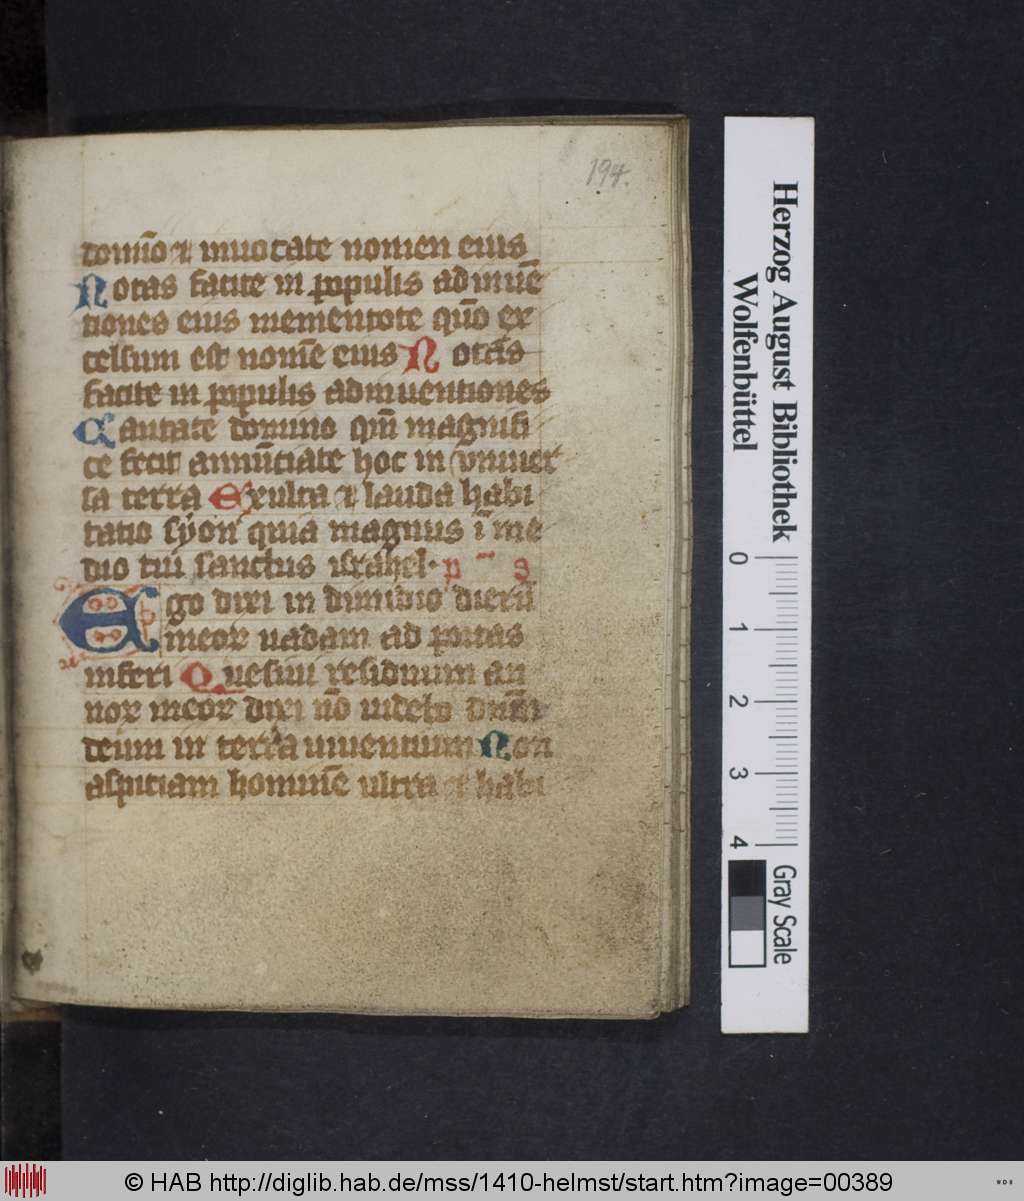 194.
domīo ⁊ inuocate nomen eius
Notas facite in populis adinuē
tiones eius mementote qūo ex
celsum est nomē eius Notas
facite in populis adinuentiones
Cantate domino qm̄ magnifi
ce fecit annūtiate hoc in vniuer
sa terra Exulta ⁊ lauda habi
tatio syon quia magnus ī me
dio tui sanctus israhel. p s
Ego dixi in dimidio dierū
meor uadam ad portas
inferi Quesiui residuum an
nor meor dixi nō uidebo dn̄m
deum in terra uiuentium Non
aspiciam hominē ultra et habi
Herzog August Bibliothek
Wolfenbüttel
0 1 2 3 4
Gray Scale
© HAB http://diglib.hab.de/mss/1410-helmst/start.htm?image=00389